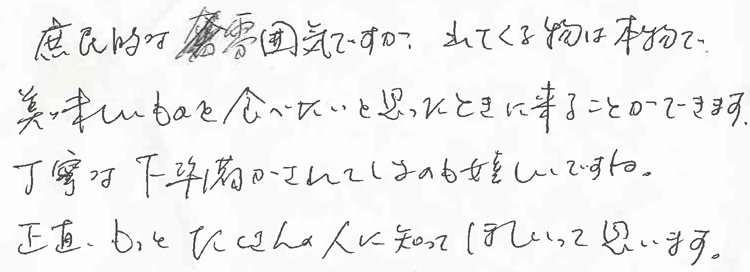 庶民的な雰囲気ですが、出てくる物は本物で、
美味しいものを食べたいと思ったときに来ることができます。
丁寧な下準備がされてしるのも嬉しいですね。
正直、もっとたくさんの人に知ってほしいって思います。